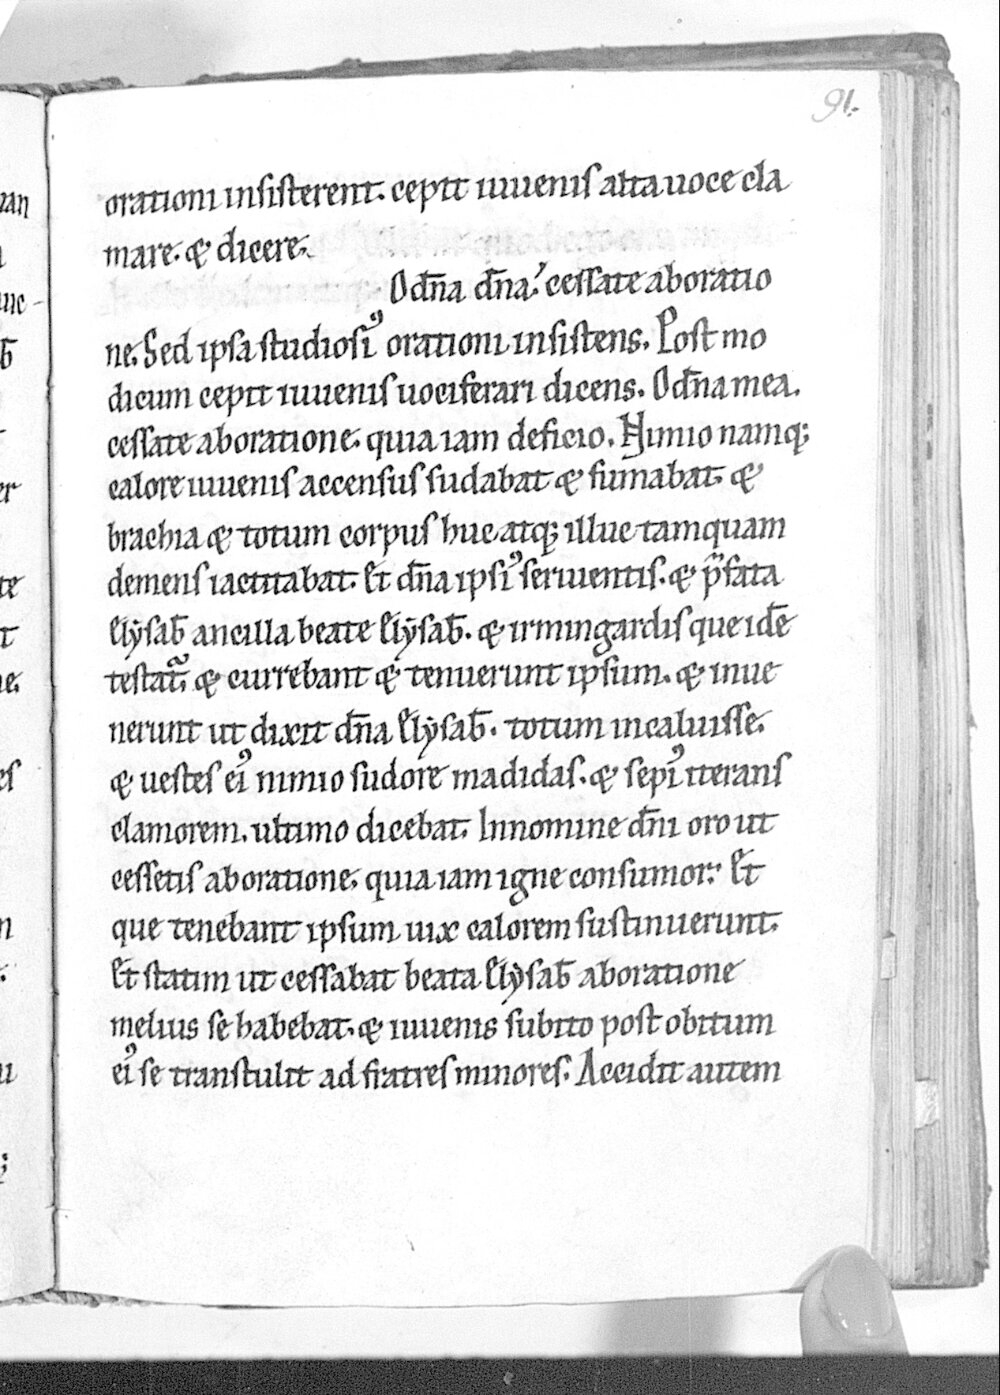 91.
orationi insisterent. cepit iuuenis alta uoce cla
mare. & dicere.
O dn̄a dn̄a cessate ab oratio
ne. Sed ipsa studiosiꝰ orationi insistens. Post mo
dicum cepit iuuenis uociferari dicens. O dn̄a mea.
cessate ab oratione. quia iam deficio. Nimio namq;
calore iuuenis accensus sudabat & fumabat. &
brachia & totum corpus huc atq; illuc tamquam
demens iactitabat. Et dn̄a ipsiꝰ seruientis. & p̄fata
Elẏsab̄ ancilla beate Elẏsab̄. & irmingardis que idē
testat᷑. & currebant & tenuerunt ipsum. & inue
nerunt ut dixit dn̄a Elẏsab̄. totum incaluisse.
& uestes eiꝰ nimio sudore madidas. & sepiꝰ iterans
clamorem. ultimo dicebat. In nomine dn̄i oro ut
cessetis ab oratione. quia iam igne consumor. Et
que tenebant ipsum uix calorem sustinuerunt.
Et statim ut cessabat beata Elẏsab̄ ab oratione
melius se habebat. & iuuenis subito post obitum
eiꝰ se transtulit ad fratres minores. Accidit autem